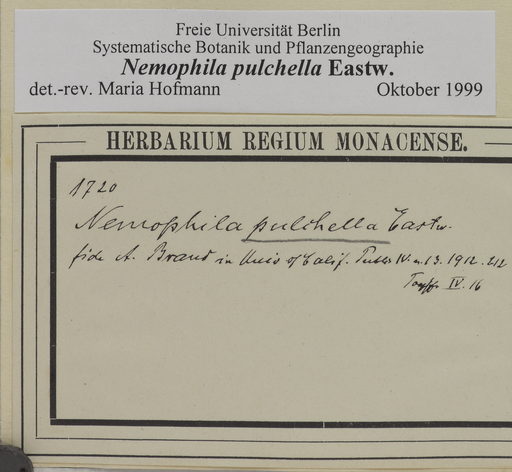 Freie Universität Berlin
Systematische Botanik und Pflanzengeographie
Nemophila pulchella Eastw.
det.-rev. Maria Hofmann Oktober 1999
HERBARIUM REGIUM MONACENSE.
1720
Nemophila pulchella Eastw.
fide A. Brand in Univ of Calif. Publ. IV. n. 13. 1912. 212
IV. 16